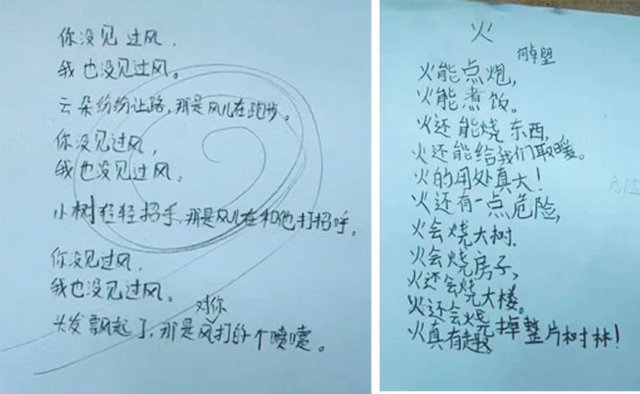 你没见过风，
我也没见过风。
云朵纷纷让路，那是风儿在跑步。
你没见过风，
我也没见过风。
小树轻轻招手，那是风儿在和他打招呼。
你没见过风，
我也没见过风。
对你
头发飘起了，那是风打的个喷嚏。
火
火能点炮，
火能煮饭。
火还能烧东西，
火还能给我们取暖。
火的用处真大！
火还有一点危险，
火会烧大树.
火会烧房子，
火还会烧大楼。
火还会烧掉整片树林！
火真有趣
危险